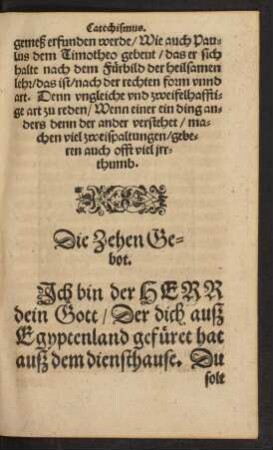 Catechismus.
gemeß erfunden werde/ Wie auch Pau-
lus dem Timotheo gebeut/ das er sich
halte nach dem Fürbild der heilsamen
lehr/ das ist/ nach der rechten form vnnd
art. Denn vngleiche vnd zweifelhafti-
ge art zu reden/ Wenn einer ein ding an-
ders denn der ander verstehet/ ma-
chen viel zweispaltungen/ gebe-
ren auch offt viel jrr-
thumb.
Die Zehen Ge-
bot.
Ich bin der HERR
dein Gott/ Der dich auß
Egyptenland gefüret hat
auß dem diensthause. Du
solt